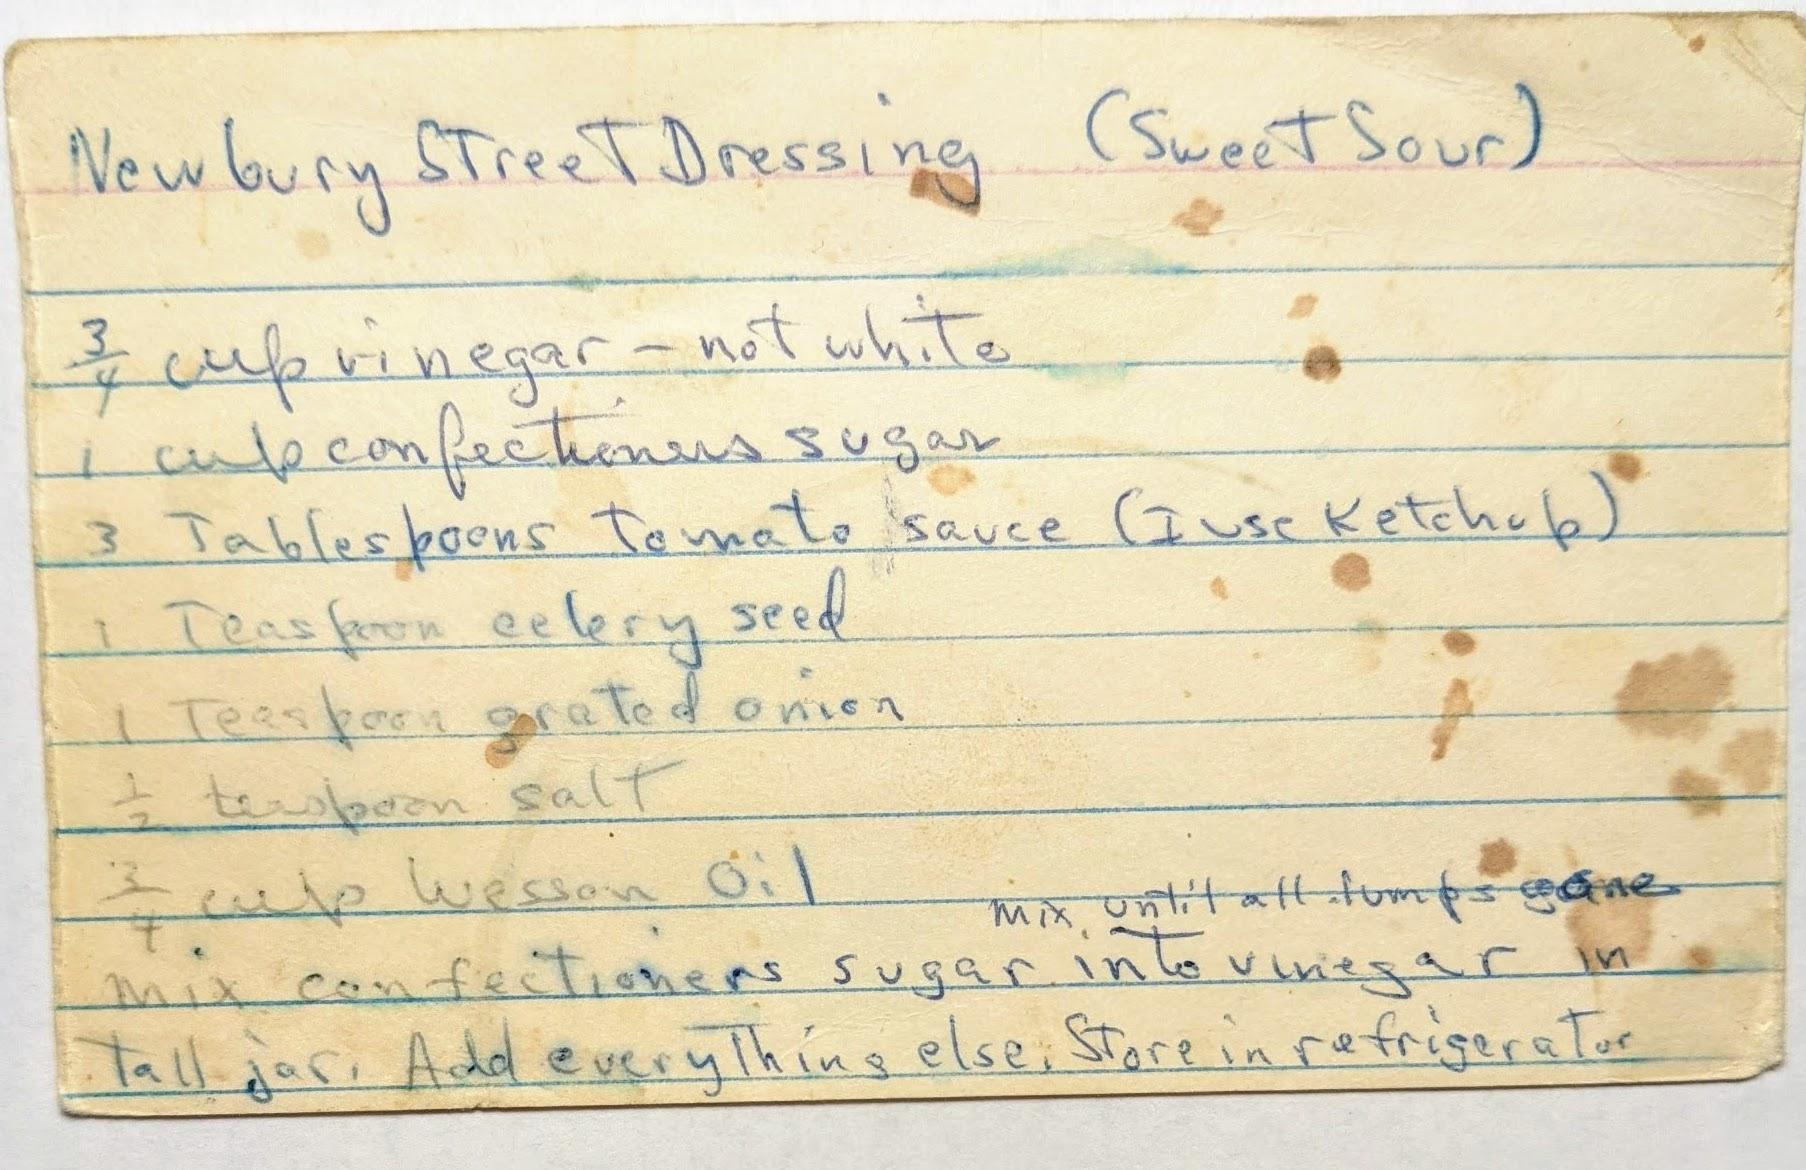 Newbury Street Dressing (Sweet Sour)
3/4 cup vinegar - not white
1 cup confectioners sugar
3 Tablespoons tomato sauce (I use Ketchup)
1 Teaspoon celery seed
1 Teaspoon grated onion
1/2 teaspoon salt
3/4 cup Wesson Oil
mix until all lumps gone
mix confectioners sugar into vinegar in
tall jar. Add everything else. Store in refrigerator